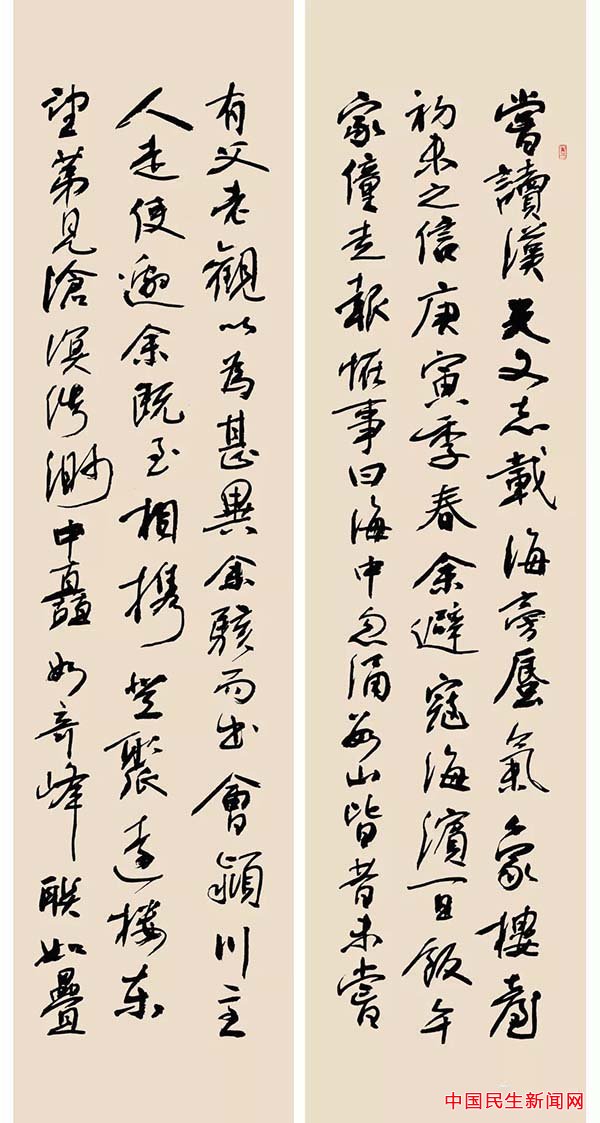 嘗讀漢天文志載海旁蜃氣象樓臺
初未之信庚寅季春余避寇海濱一日飯午
家僮走報怪事曰海中忽涌數山皆昔未嘗
有父老觀以為甚異余駭而出會潁川主
人走使邀余既至相携登聚遠樓東
望第見滄溟浩渺中矗如奇峰聯如疊
中国民生新闻网